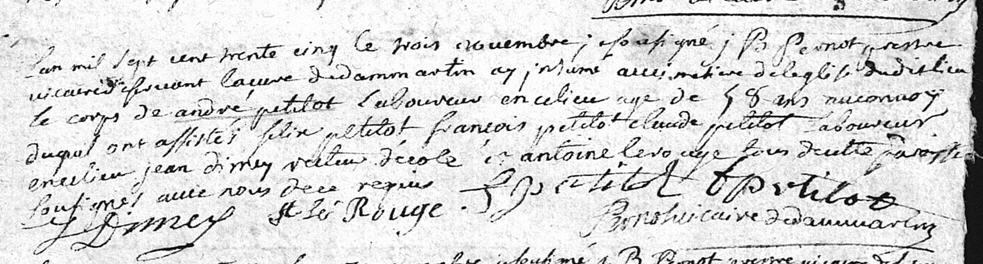 L'an mil sept cent trente cinq le trois novembre je sousigné j B Pernot prestre
vicaire desservant la cure de dammartin ay inhumé au cimetiere de leglise dudit lieu
le corps de andré petitot Laboureur en ce lieu age de 58 ans au convoy
duquel ont assistés petitot francois petitot claude petitot laboureur
en ce lieu jean dimey recteur décole et antoine le rouge tous de cette paroisse
sousignes avec nous de ce requis
J Dimey Le Rouge F petitot petitot
Pernot vicaire de dammartin
B Pernot prestre vicaire